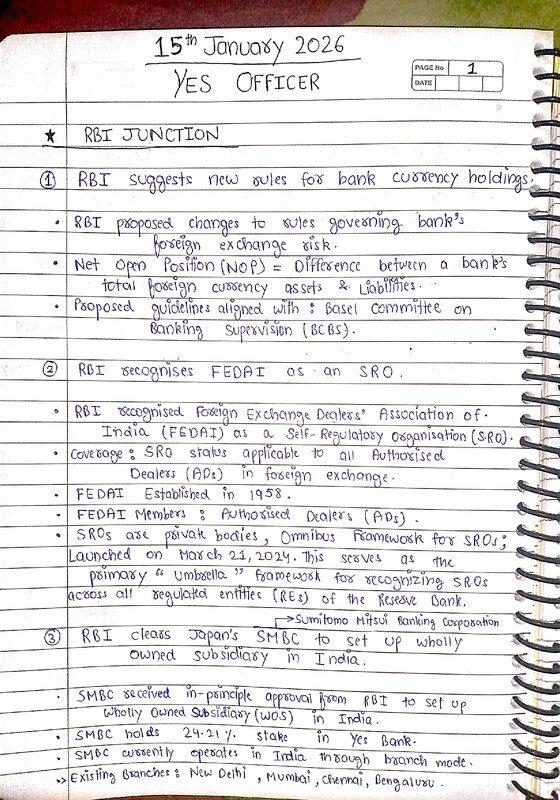 15th January 2026
YES OFFICER
PAGE No 1
DATE
★ RBI JUNCTION
① RBI suggests new rules for bank currency holdings.
• RBI proposed changes to rules governing bank's
foreign exchange risk.
• Net Open Position (NOP) = Difference between a bank's
total foreign currency assets & Liabilities.
• Proposed guidelines aligned with : Basel committee on
Banking Supervision (BCBS).
② RBI recognises FEDAI as an SRO.
• RBI recognised Foreign Exchange Dealers' Association of
India (FEDAI) as a Self-Regulatory Organisation (SRO).
• Coverage : SRO status applicable to all Authorised
Dealers (ADs) in foreign exchange.
• FEDAI Established in 1958.
• FEDAI Members : Authorised Dealers (ADs).
• SROs are private bodies, Omnibus Framework for SROs;
Launched on March 21, 2024. This serves as the
primary "umbrella" framework for recognizing SROs
across all regulated entities (REs) of the Reserve Bank.
→ Sumitomo Mitsui Banking Corporation
③ RBI clears Japan's SMBC to set up wholly
owned subsidiary in India.
• SMBC received in-principle approval from RBI to set up
Wholly Owned Subsidiary (WOS) in India.
• SMBC holds 24.21% stake in Yes Bank.
• SMBC currently operates in India through branch mode.
>> Existing Branches : New Delhi, Mumbai, Chennai, Bengaluru.